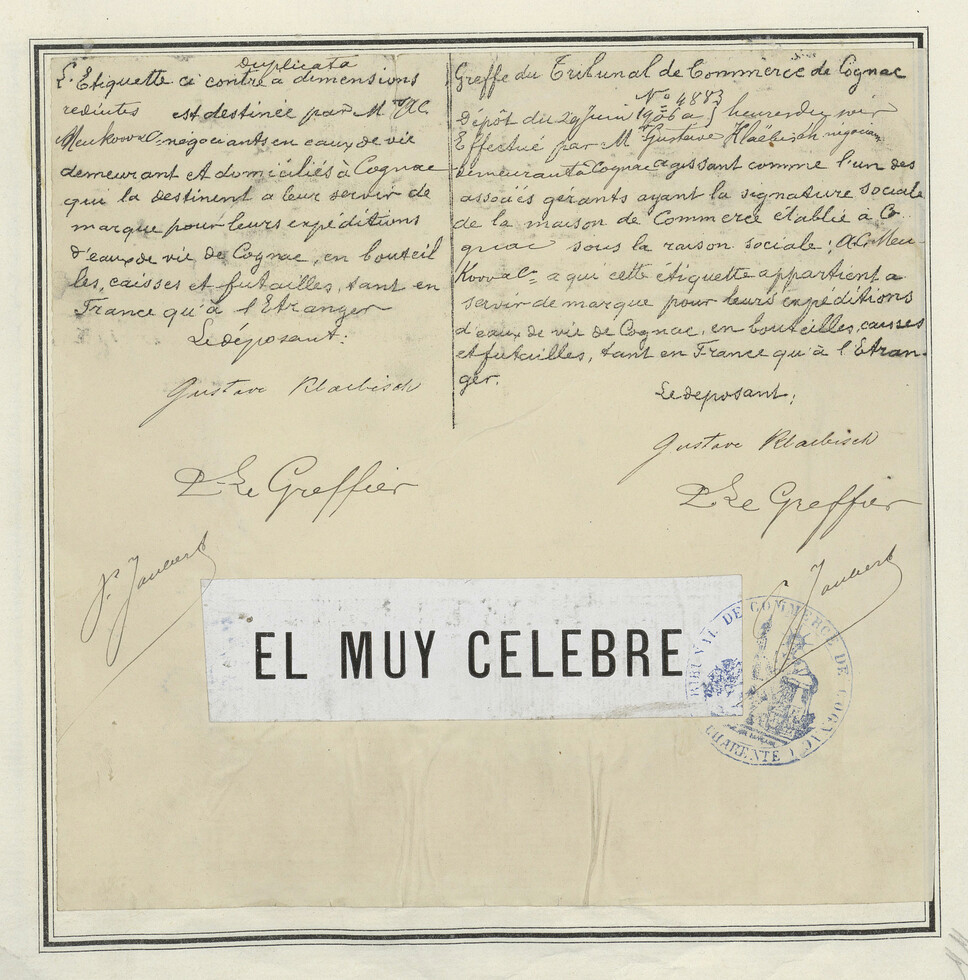 Duplicata
L'Etiquette ci contre à dimensions
réduites est destinée par M
Meukow & Cie négociants en eaux de vie
demeurant et domiciliés à Cognac
qui la destinent a leur servir de
marque pour leurs expéditions
d'eaux de vie de Cognac, en bouteil
les, caisses et futailles, tant en
France qu'à l'Etranger
Le déposant:
Gustave Klaebisch
P. Le Greffier
J. Jaubert
Greffe du Tribunal de Commerce de Cognac
No 4883
Dépôt du 29 Juin 1906 à 3 heures du soir
Effectué par M Gustave Klaebisch négociant
demeurant à Cognac agissant comme l'un des
associés gérants ayant la signature sociale
de la maison de Commerce établie à Co
gnac sous la raison sociale: A.C. Meu-
kow & Cie a qui cette étiquette appartient a
servir de marque pour leurs expéditions
d'eaux de vie de Cognac, en bouteilles, caisses
et futailles, tant en France qu'à l'Etran-
ger.
Le déposant:
Gustave Klaebisch
P. Le Greffier
Jaubert
EL MUY CELEBRE
TRIBUNAL DE COMMERCE DE COGNAC
CHARENTE